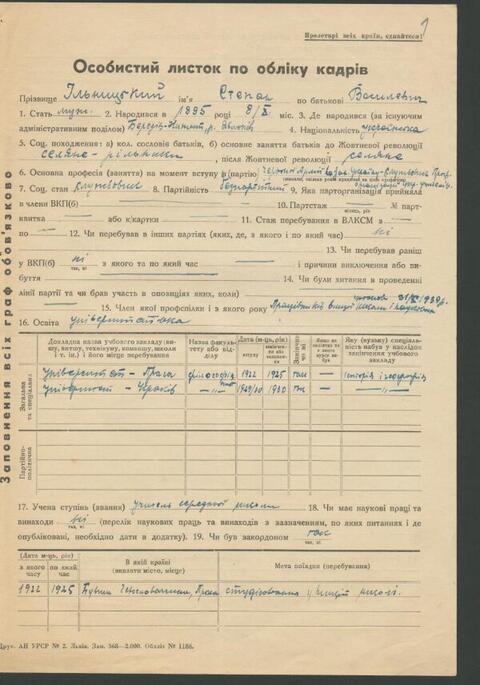 1
Пролетарі всіх країн, єднайтеся!
Особистий листок по обліку кадрів
Прізвище Ільницький ім'я Степан по батькові Васильевич
1. Стать муж. 2. Народився в 1895 році 8/X міс. 3. Де народився (за існуючим
адміністративним поділом) 4. Національність українська
5. Соц. походження: а) кол. сословіє батьків, б) основне заняття батьків до Жовтневої революції
селяне - рільники, після Жовтневої революції селяне
6. Основна професія (заняття) на момент вступу в (партію)
7. Соц. стан службовик 8. Партійність безпартійний 9. Яка парторганізація прийняла
в члени ВКП(б) — 10. Партстаж — № парт-
місяць, рік
квитка — або к/картки — 11. Стаж перебування в ВЛКСМ з —
по — 12. Чи перебував в інших партіях (яких, де, з якого і по який час) ні
13. Чи перебував раніш
у ВКП(б) ні з якого та по який час — і причини виключення або ви-
так, ні
буття — 14. Чи були хитання в проведенні
лінії партії та чи брав участь в опозиціях, яких, коли)
15. Член якої профспілки і з якого року
16. Освіта університетська
Докладна назва учбового закладу (вишу, втузу, технікуму, комвишу, школи і т. ін.) і його місце перебування
Назва факультету або відділу
Дата (м-ць, рік)
вступу
Закінчив чи ні
Яку (вузьку) спеціальність набув у наслідок закінчення учбового закладу
Загальна та спеціальна
Університет - Прага філософічний 1922 1925 так — історія і географія
Університет - Краків —"— 1929/30 1930 так — —"—
Партійно-політична
17. Учена ступінь (звання) учитель середньої школи 18. Чи має наукові праці та
винаходи ні (перелік наукових праць та винаходів з зазначенням, по яких питаннях і де
так, ні
опубліковані, необхідно дати в додатку). 19. Чи був закордоном так
так, ні
(Дата м-ць, рік)
з якого часу
по який час
В якій країні
(вказати місто, місце)
Мета поїздки (перебування)
1922 1925 Чехословаччина, Прага студіювання у вищій школі
Заповнення всіх граф обов'язково
Друк. АН УРСР № 2. Львів. Зам. 368—2.000. Обліт № 1186.